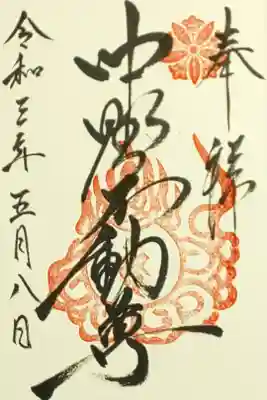 奉拝
中野不動尊
令和三年五月八日